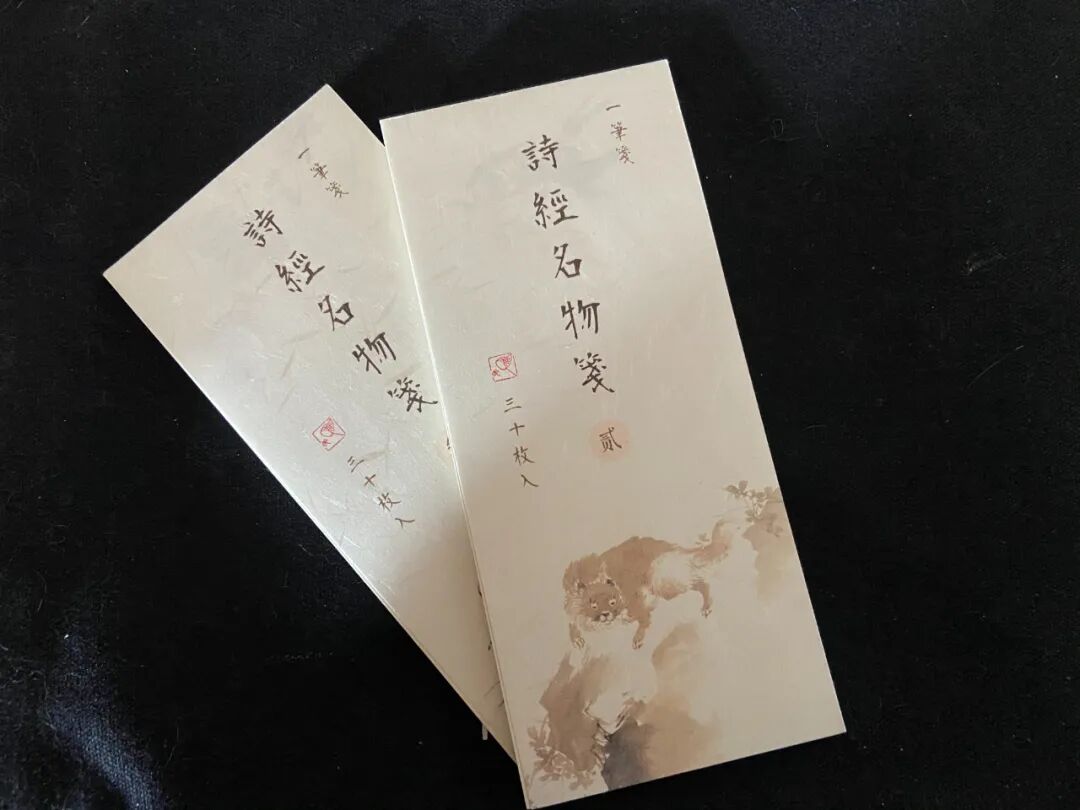 一筆箋
詩經名物箋
三十枚入
一筆箋
詩經名物箋
贰
三十枚入